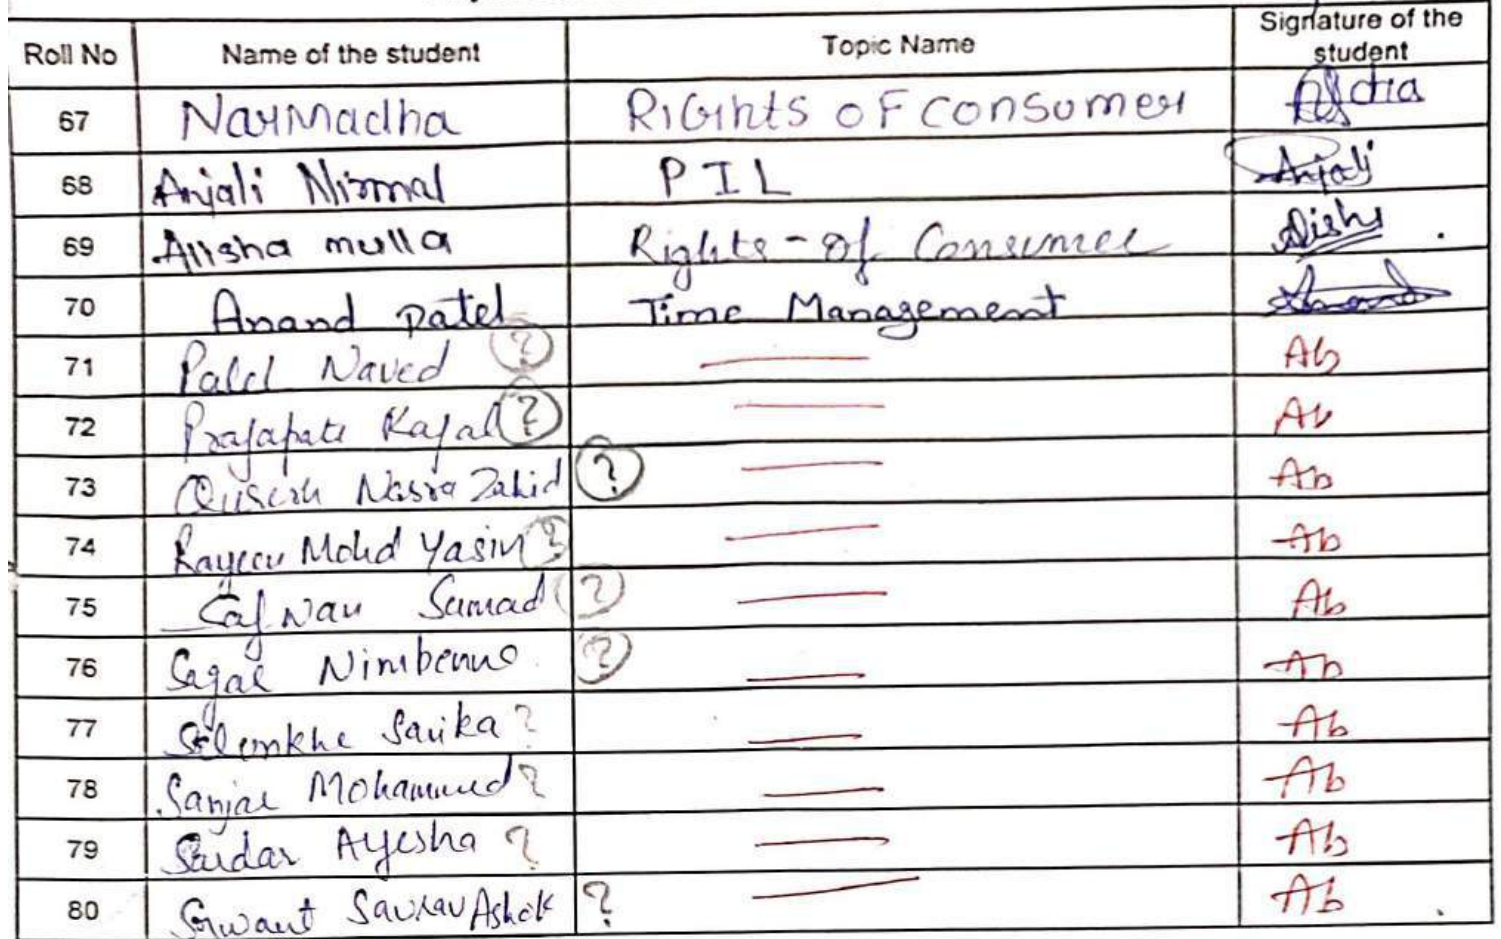 Roll No Name of the student Topic Name Signature of the student
67 Narmadha RiGhts oF consumer
68 Anjali Nirmal PIL Anjali
69 Alisha mulla Rights-of Consumer Aisha
70 Anand patel Time Management Anand
71 Patel Naved ? — Ab
72 Prajapati Kajal ? — Ab
73 Nasra Zahid ? — Ab
74 Mohd Yasin ? — Ab
75 Safwan Samad ? — Ab
76 Sejal ? — Ab
77 Sarika ? — Ab
78 Mohammed ? — Ab
79 Sardar Ayesha ? — Ab
80 Sawant Saurav Ashok ? — Ab